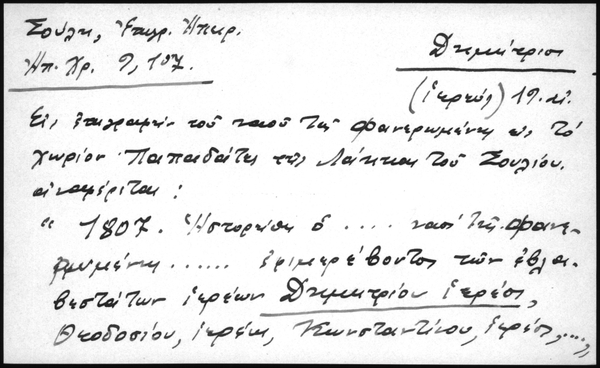 Σούλι, Ἐπιγρ. Ἠπειρ.
Ἠπ. Χρ. 9, 107.
Δημήτριος
(ἱερεύς) 19. αἰ.
Εἰς ἐπιγραφὴν τοῦ ναοῦ τῆς Φανερωμένης εἰς τὸ
χωρίον Παπαδάτες τῆς Λάκκας τοῦ Σουλίου
ἀναφέρεται:
" 1807. Ἡστορήθη ὁ .... ναὸς τῆς Φανε-
ρωμένης ...... ἐφημερέβοντος τῶν ἐβλα-
βεστάτων ἱερέων Δημητρίου ἱερέος,
Θεοδοσίου, ἱερέως, Κωνσταντίνου, ἱερέος, ....,